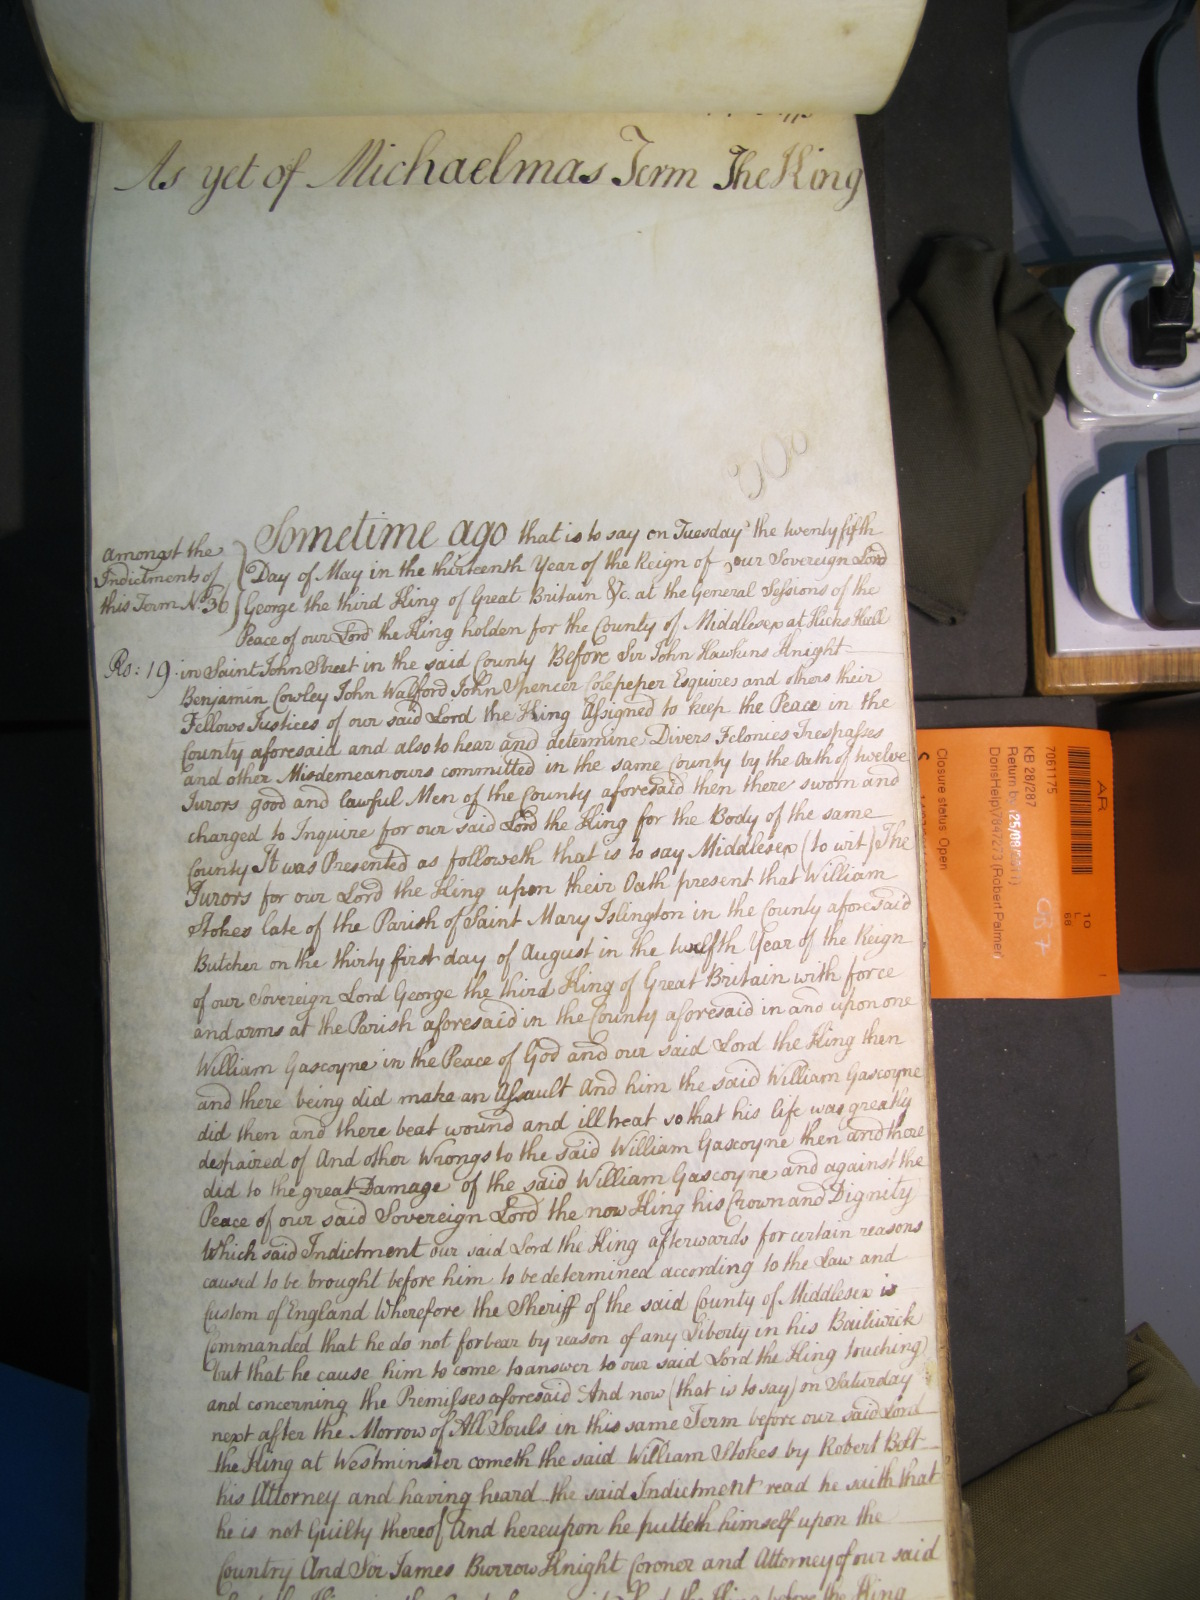 As yet of Michaelmas Term The King
Sometime ago that is to say on Tuesday the twenty fifth
amongst the
Indictments of
this Term No. 36
Day of May in the thirteenth Year of the Reign of our Sovereign Lord
George the third King of Great Britain &c. at the General Sessions of the
Peace of our Lord the King holden for the County of Middlesex at Hicks Hall
Ro: 19.
in Saint John Street in the said County Before Sir John Hawkins Knight
Benjamin Cowley John Walford John Spencer Colepeper Esquires and others their
Fellows Justices of our said Lord the King Assigned to keep the Peace in the
County aforesaid and also to hear and determine Divers Felonies Trespasses
and other Misdemeanours committed in the same County by the Oath of twelve
Jurors good and lawful Men of the County aforesaid then there sworn and
charged to Inquire for our said Lord the King for the Body of the same
County It was Presented as followeth that is to say Middlesex (to wit) The
Jurors for our Lord the King upon their Oath present that William
Stokes late of the Parish of Saint Mary Islington in the County aforesaid
Butcher on the thirty first day of August in the twelfth Year of the Reign
of our Sovereign Lord George the third King of Great Britain with force
and arms at the Parish aforesaid in the County aforesaid in and upon one
William Gascoyne in the Peace of God and our said Lord the King then
and there being did make an Assault And him the said William Gascoyne
did then and there beat wound and illtreat so that his life was greatly
despaired of And other Wrongs to the said William Gascoyne then and there
did to the great Damage of the said William Gascoyne and against the
Peace of our said Sovereign Lord the now King his Crown and Dignity
Which said Indictment our said Lord the King afterwards for certain reasons
caused to be brought before him to be determined according to the Law and
Custom of England Wherefore the Sheriff of the said County of Middlesex is
Commanded that he do not forbear by reason of any Liberty in his Bailiwick
but that he cause him to come to answer to our said Lord the King touching
and concerning the Premisses aforesaid And now (that is to say) on Saturday
next after the Morrow of All Souls in this same Term before our said Lord
the King at Westminster cometh the said William Stokes by Robert Bolt
his Attorney and having heard the said Indictment read he saith that
he is not Guilty thereof And hereupon he putteth himself upon the
Country And Sir James Burrow Knight Coroner and Attorney of our said
the King before the King
AR
7061175
KB 28/287
Return by (25/08/2011)
DorisHelp|7847273 (Robert Palmer)
Closure status: Open
10
L
68